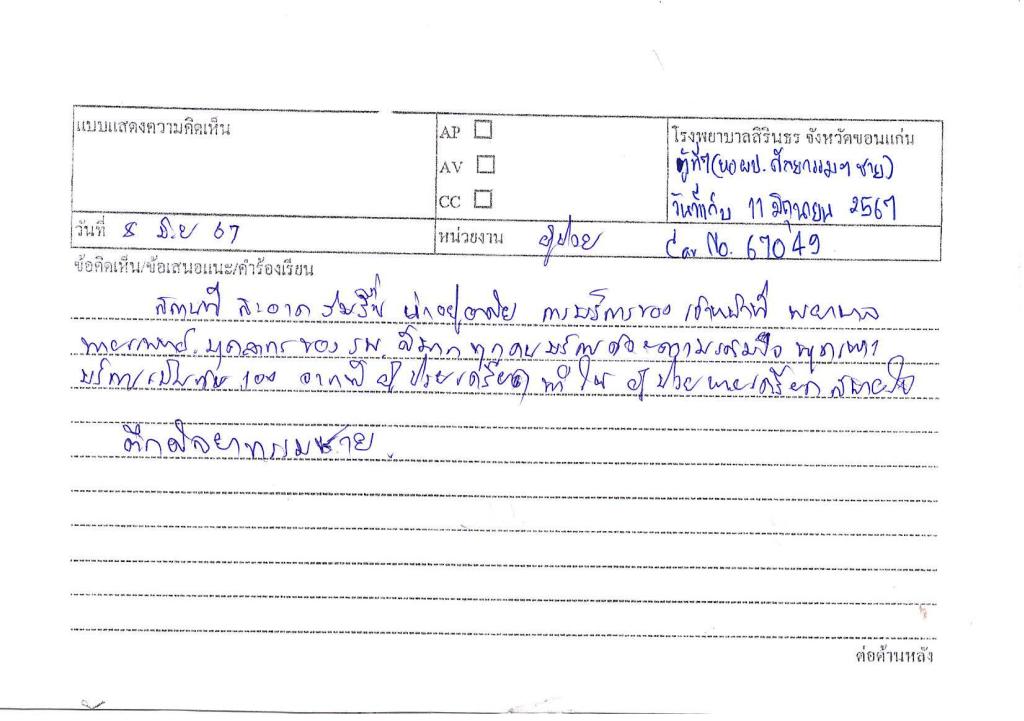 แบบแสดงความคิดเห็น
AP
AV
CC
โรงพยาบาลสิรินธร จังหวัดขอนแก่น
ตู้ที่ 9 (หอผป. ศัลยกรรมฯ ชาย)
วันที่เก็บ 11 มิถุนายน 2567
วันที่ 8 มิ.ย 67
หน่วยงาน ผู้ป่วย
Car No. 67049
ข้อคิดเห็น/ข้อเสนอแนะ/คำร้องเรียน
สถานที่ สะอาด ร่มรื่น น่าอยู่อาศัย การบริการของ เจ้าหน้าที่ พยาบาล
นายแพทย์ บุคลากรของ รพ. ดีมาก ทุกคน บริการด้วยความเต็มใจ
บริการเป็นกันเอง จากที่ ผู้ป่วยเครียด ทำให้ ผู้ป่วยหายเครียด สบายใจ
ตึกศัลยากรรมชาย.
ต่อด้านหลัง